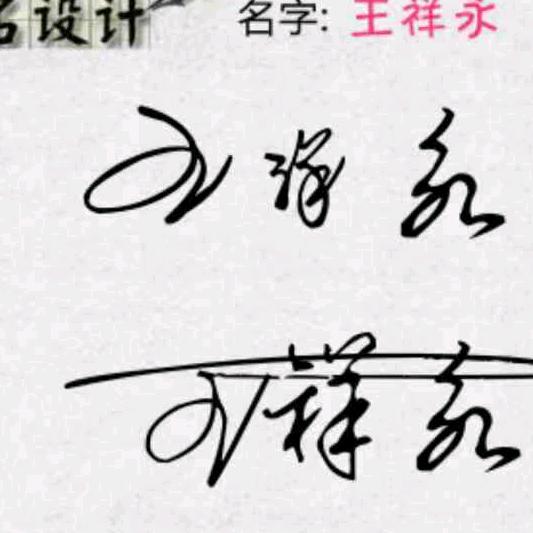 名设计
名字: 王祥永
王祥永
王祥永